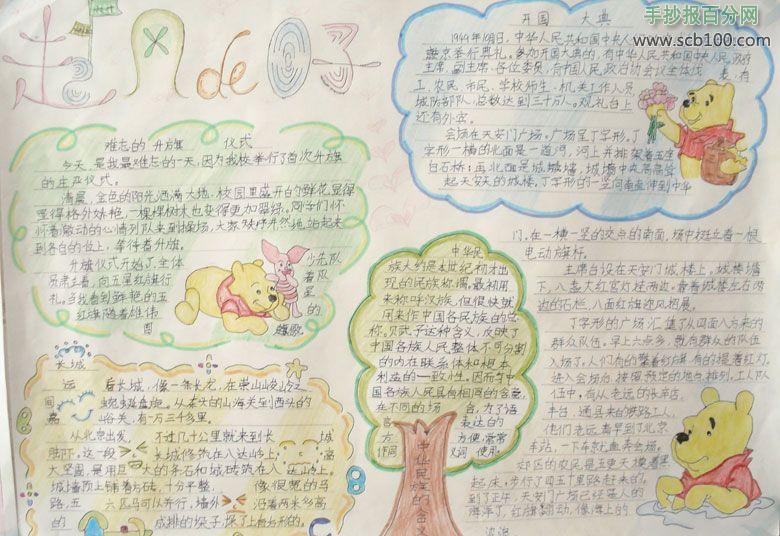 走月de日子
手抄报百分网
www.scb100.com
开国 大典
1949年10月1日,中华人民共和国中央人
民政府在北京举行典礼。参加开国大典的,有中华人民共和国中央人民政府
主席、副主席、各位委员,有中国人民政治协会议全体代表,有
工人、农民、市民、学校师生、机关工作人员
城防部队,总数达到三十万人。观礼台上
还有外宾。
会场在天安门广场。广场呈丁字形。丁
字形一横的北面是一道河,河上并排架着五座
白石桥;再北面是城墙,城墙中央高高耸
起天安门的城楼。丁字形的一竖向南直伸到中华
门,在一横一竖的交点的南面,场中挺立着一根
电动旗杆。
主席台设在天安门城楼上。城楼檐
下,八盏大红宫灯挂两边。靠着城楼左右两
边的石栏,八面红旗迎风招展。
丁字形的广场汇集了从四面八方来的
群众队伍。早上六点多,就有群众的队伍
入场了。人们有的擎着红旗,有的提着红灯。
进入会场后,按照预定的地点排列。工人队
伍中,有从老远的长辛店、
丰台、通县来的铁路工人,
他们老远清早到了北京
车站,一下车就直奔会场。
郊区的农民是五更天摸着黑
起床,步行了四五十里路赶来的。
到了正午,天安门广场已经是人的
海洋了,红旗翻动,像海上的
波浪
难忘的 升旗 仪式
今天,是我最难忘的一天,因为我校举行了首次升旗
的庄严仪式。
清晨,金色的阳光洒满大地,校园里盛开的鲜花显得
显得格外妹艳,一棵棵树木也变得更加翠绿。同学们怀
怀着激动的心情列队来到操场,大家秩序井然地站起来
到各自的位上,等待着升旗。
升旗仪式开始了,全体
员肃立着,向五星红旗行
礼。当我看到鲜艳的五
红旗随着雄伟
国
少先队
着队
星的
歌
中华民
族大约是本世纪初才出
现的民族称谓,最初用
来称呼汉族,但很快就
用来作中国各民族的总
称。
这种含义,反映了
中国各族人民整体不可分割
的内在联系体和根本
利益的一致性。因而与中
国各族人民具有相同的含意,
在不同的场合,为了语
言 方 表达
方便,常常
作同 义词 使用。
中华民族的含义
长城
远 看长城,像一条长龙,在崇山峻岭之
间 蜿蜒盘旋。从东头的山海关到西头的
嘉 峪关,有一万三千多里。
从北京出发, 不过几十里就来到长 城
脚下。这一段 长城修筑在八达岭上,
高
大坚固,是用巨 大的条石和城砖筑在
城墙顶上铺着方砖,十分平整, 像很宽的马
路,五 六匹马可以并行,墙外 沿着两米多高
的 成排的垛子,垛子上